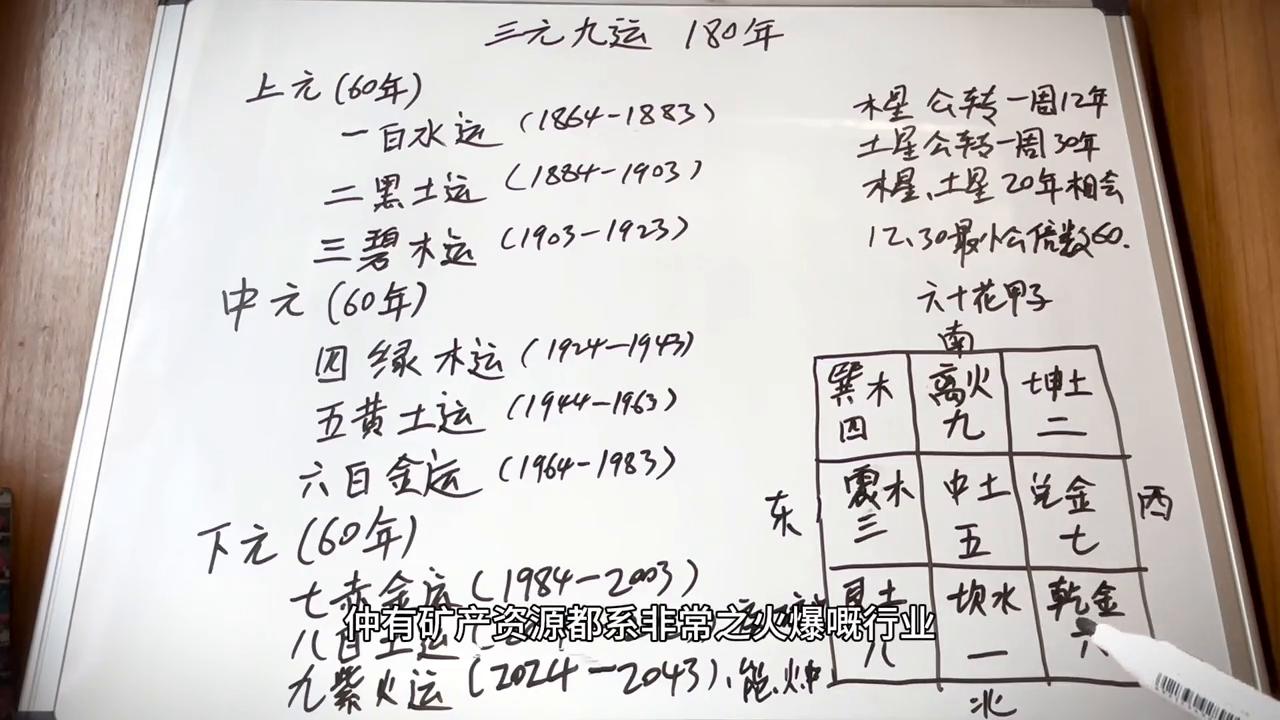 三元九运 180年
上元(60年)
一白水运 (1864-1883)
二黑土运 (1884-1903)
三碧木运 (1903-1923)
中元(60年)
四绿木运 (1924-1943)
五黄土运 (1944-1963)
六白金运 (1964-1983)
下元(60年)
七赤金运 (1984-2003)
八白土运
九紫火运 (2024-2043)、能
木星公转一周12年
土星公转一周30年
木星、土星20年相会
12、30最小公倍数60.
六十花甲子
南
巽木 离火 坤土
四 九 二
东
震木 中土 兑金
三 五 七
西
艮土 坎水 乾金
八 一 六
北
仲有矿产资源都系非常之火爆嘅行业